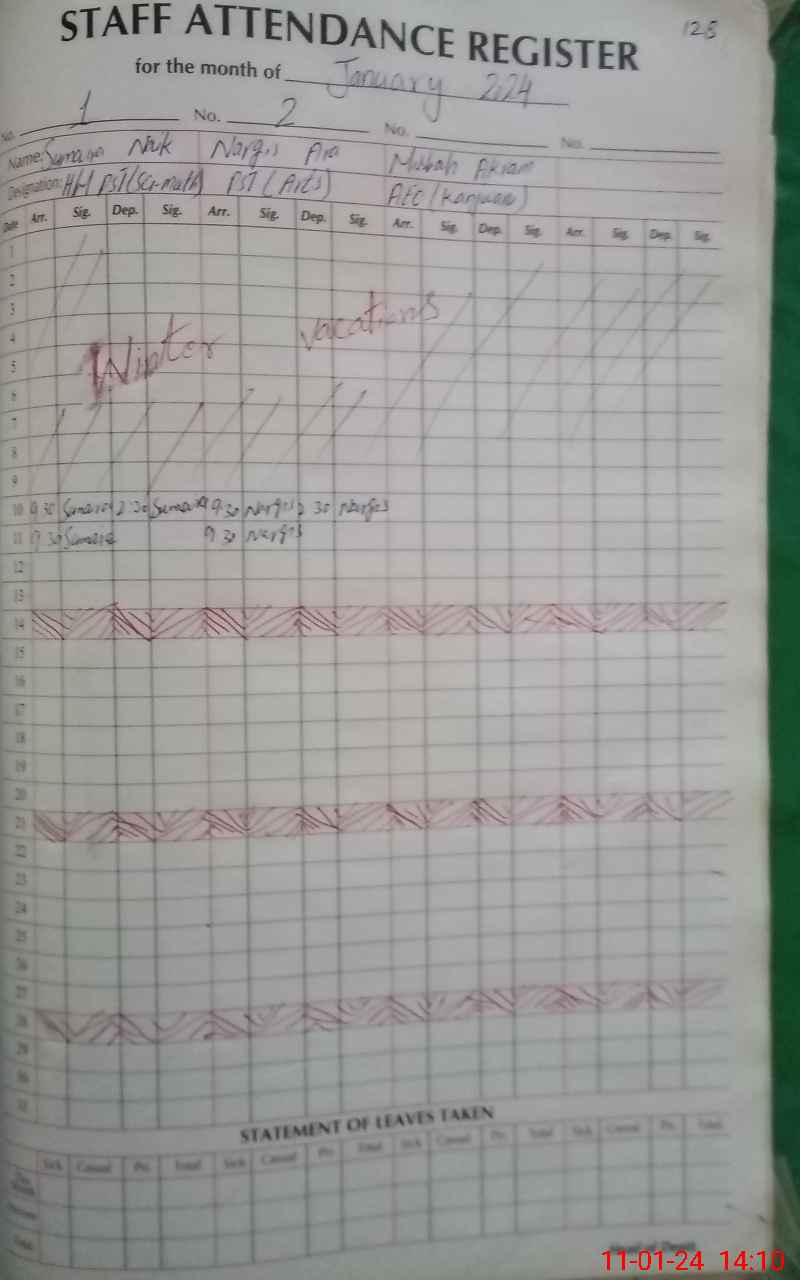 128
STAFF ATTENDANCE REGISTER
for the month of January 2024
No. 1 No. 2 No. No.
Name: Sumaira Naik Nargis Ara Misbah Akram
Designation: HM PST(Sci-math) PST (Arts) AEC (Kanjwan)
Date Arr. Sig. Dep. Sig. Arr. Sig. Dep. Sig. Arr. Sig. Dep. Sig. Arr. Sig. Dep. Sig.
1
2
3
4
Winter vacations
5
6
7
8
9
10 9 30 Sumaira 2:30 Sumaira 9:30 Nargis 2 30 Nargis
11 9 30 Sumaira 9 30 Nargis
12
13
14
15
16
17
18
19
20
21
22
23
24
25
26
27
28
29
30
31
STATEMENT OF LEAVES TAKEN
Sick Casual Pri. Total Sick Casual Pri. Total Sick Casual Pri. Total Sick Casual Pri. Total
Total
Head of Deptt.
11-01-24 14:10